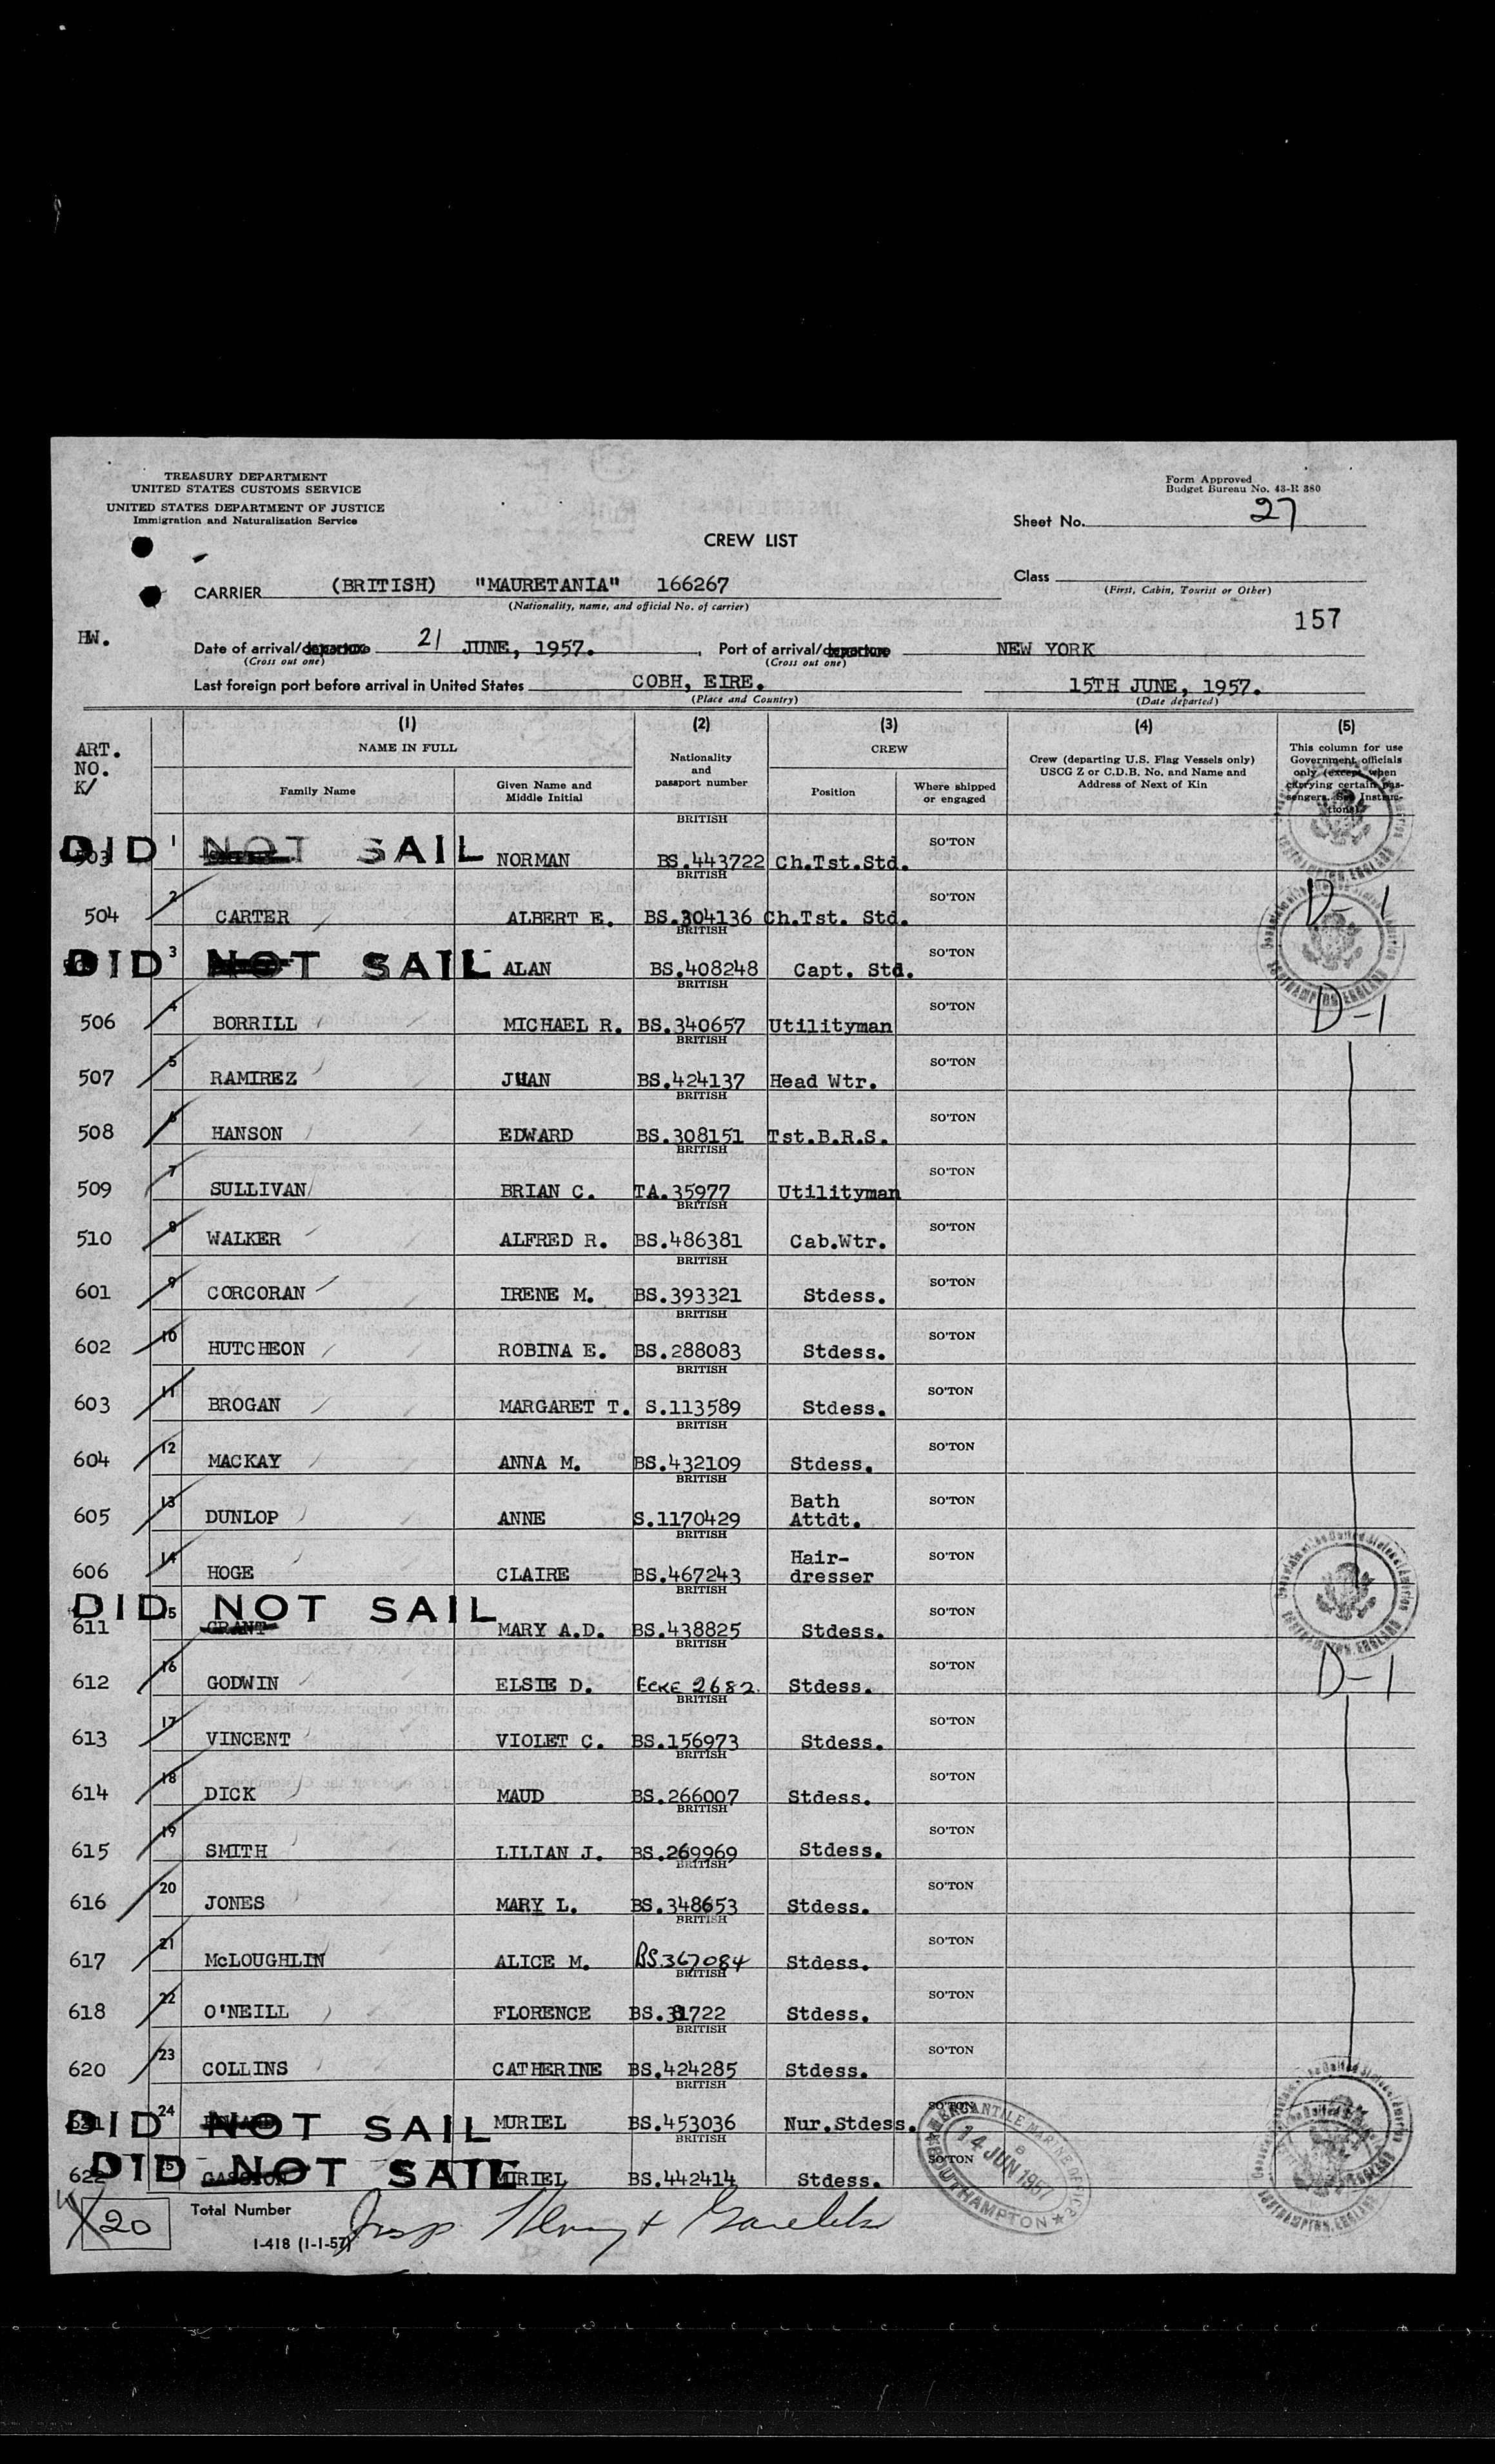 TREASURY DEPARTMENT
UNITED STATES CUSTOMS SERVICE
UNITED STATES DEPARTMENT OF JUSTICE
Immigration and Naturalization Service
Form Approved
Budget Bureau No. 43-R 380
Sheet No. 27
CREW LIST
CARRIER (BRITISH) "MAURETANIA" 166267
(Nationality, name, and official No. of carrier)
Class
(First, Cabin, Tourist or Other)
157
HW.
Date of arrival/departure 21 JUNE, 1957. Port of arrival/departure NEW YORK
(Cross out one) (Cross out one)
Last foreign port before arrival in United States COBH, EIRE. 15TH JUNE, 1957.
(Place and Country) (Date departed)
ART. NO. K/
(1) (2) (3) (4) (5)
NAME IN FULL
Family Name
Given Name and Middle Initial
Nationality and passport number
CREW
Position
Where shipped or engaged
Crew (departing U.S. Flag Vessels only) USCG Z or C.D.B. No. and Name and Address of Next of Kin
This column for use Government officials only (except when carrying certain passengers. See Instructions)
503 1 DID NOT SAIL NORMAN BRITISH BS.443722 Ch.Tst.Std. SO'TON
504 2 CARTER ALBERT E. BRITISH BS.304136 Ch.Tst. Std. SO'TON D-1
3 DID NOT SAIL ALAN BRITISH BS.408248 Capt. Std. SO'TON
506 4 BORRILL MICHAEL R. BRITISH BS.340657 Utilityman SO'TON D-1
507 5 RAMIREZ JUAN BRITISH BS.424137 Head Wtr. SO'TON
508 6 HANSON EDWARD BRITISH BS.308151 Tst.B.R.S. SO'TON
509 7 SULLIVAN BRIAN C. BRITISH TA.35977 Utilityman SO'TON
510 8 WALKER ALFRED R. BRITISH BS.486381 Cab.Wtr. SO'TON
601 9 CORCORAN IRENE M. BRITISH BS.393321 Stdess. SO'TON
602 10 HUTCHEON ROBINA E. BRITISH BS.288083 Stdess. SO'TON
603 11 BROGAN MARGARET T. BRITISH S.113589 Stdess. SO'TON
604 12 MACKAY ANNA M. BRITISH BS.432109 Stdess. SO'TON
605 13 DUNLOP ANNE BRITISH S.1170429 Bath Attdt. SO'TON
606 14 HOGE CLAIRE BRITISH BS.467243 Hair-dresser SO'TON
611 15 GRANT DID NOT SAIL MARY A.D. BRITISH BS.438825 Stdess. SO'TON
612 16 GODWIN ELSIE D. BRITISH 2682. Stdess. SO'TON D-1
613 17 VINCENT VIOLET C. BRITISH BS.156973 Stdess. SO'TON
614 18 DICK MAUD BRITISH BS.266007 Stdess. SO'TON
615 19 SMITH LILIAN J. BRITISH BS.269969 Stdess. SO'TON
616 20 JONES MARY L. BRITISH BS.348653 Stdess. SO'TON
617 21 McLOUGHLIN ALICE M. BRITISH BS.367084 Stdess. SO'TON
618 22 O'NEILL FLORENCE BRITISH Stdess. SO'TON
620 23 COLLINS CATHERINE BRITISH BS.424285 Stdess. SO'TON
24 DID NOT SAIL MURIEL BRITISH BS.453036 Nur.Stdess. SO'TON
622 25 DID NOT SAIL MURIEL BRITISH BS.442414 Stdess. SO'TON
MERCANTILE MARINE OFFICE
14 JUN 1957
SOUTHAMPTON
20 Total Number
I-418 (1-1-57)